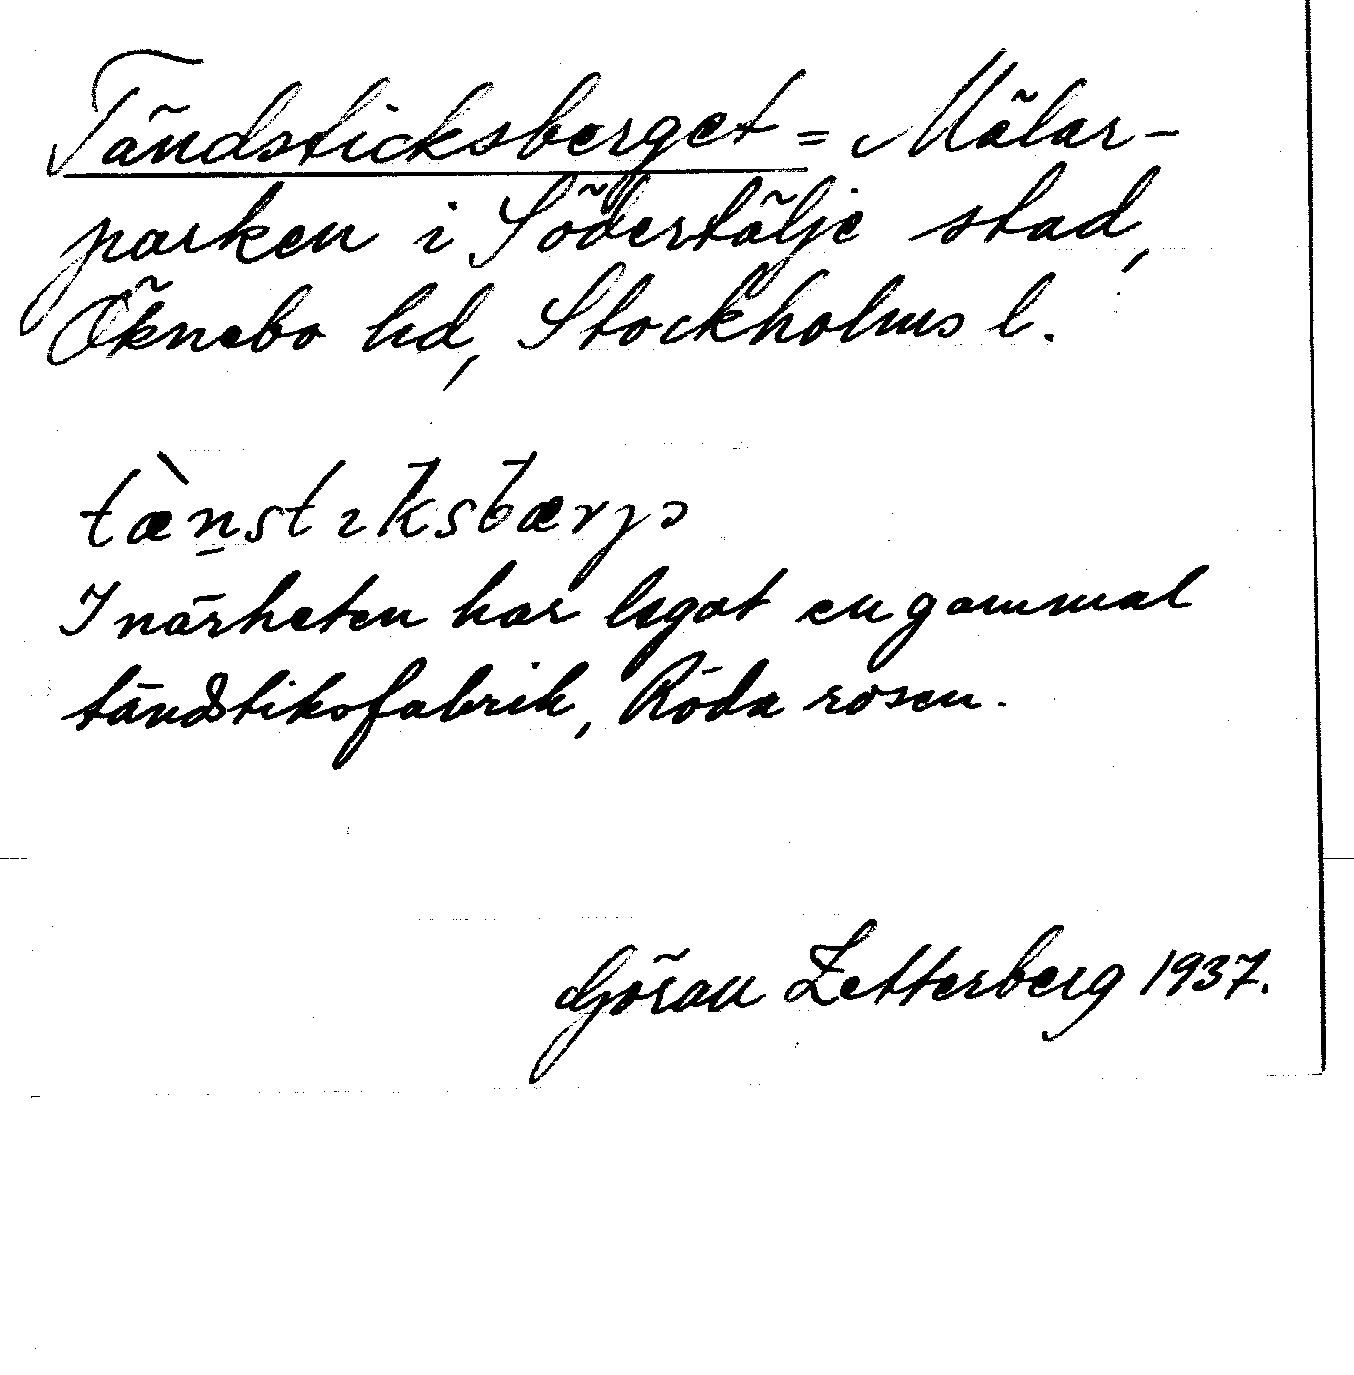 Tändsticksberget = Mälar-
parken i Södertälje stad,
Öknebo hd, Stockholms l.
tæ̀n̲stıksbærjə
I närheten har legat en gammal
tändstiksfabrik, Röda rosen.
Göran Zetterberg 1937.